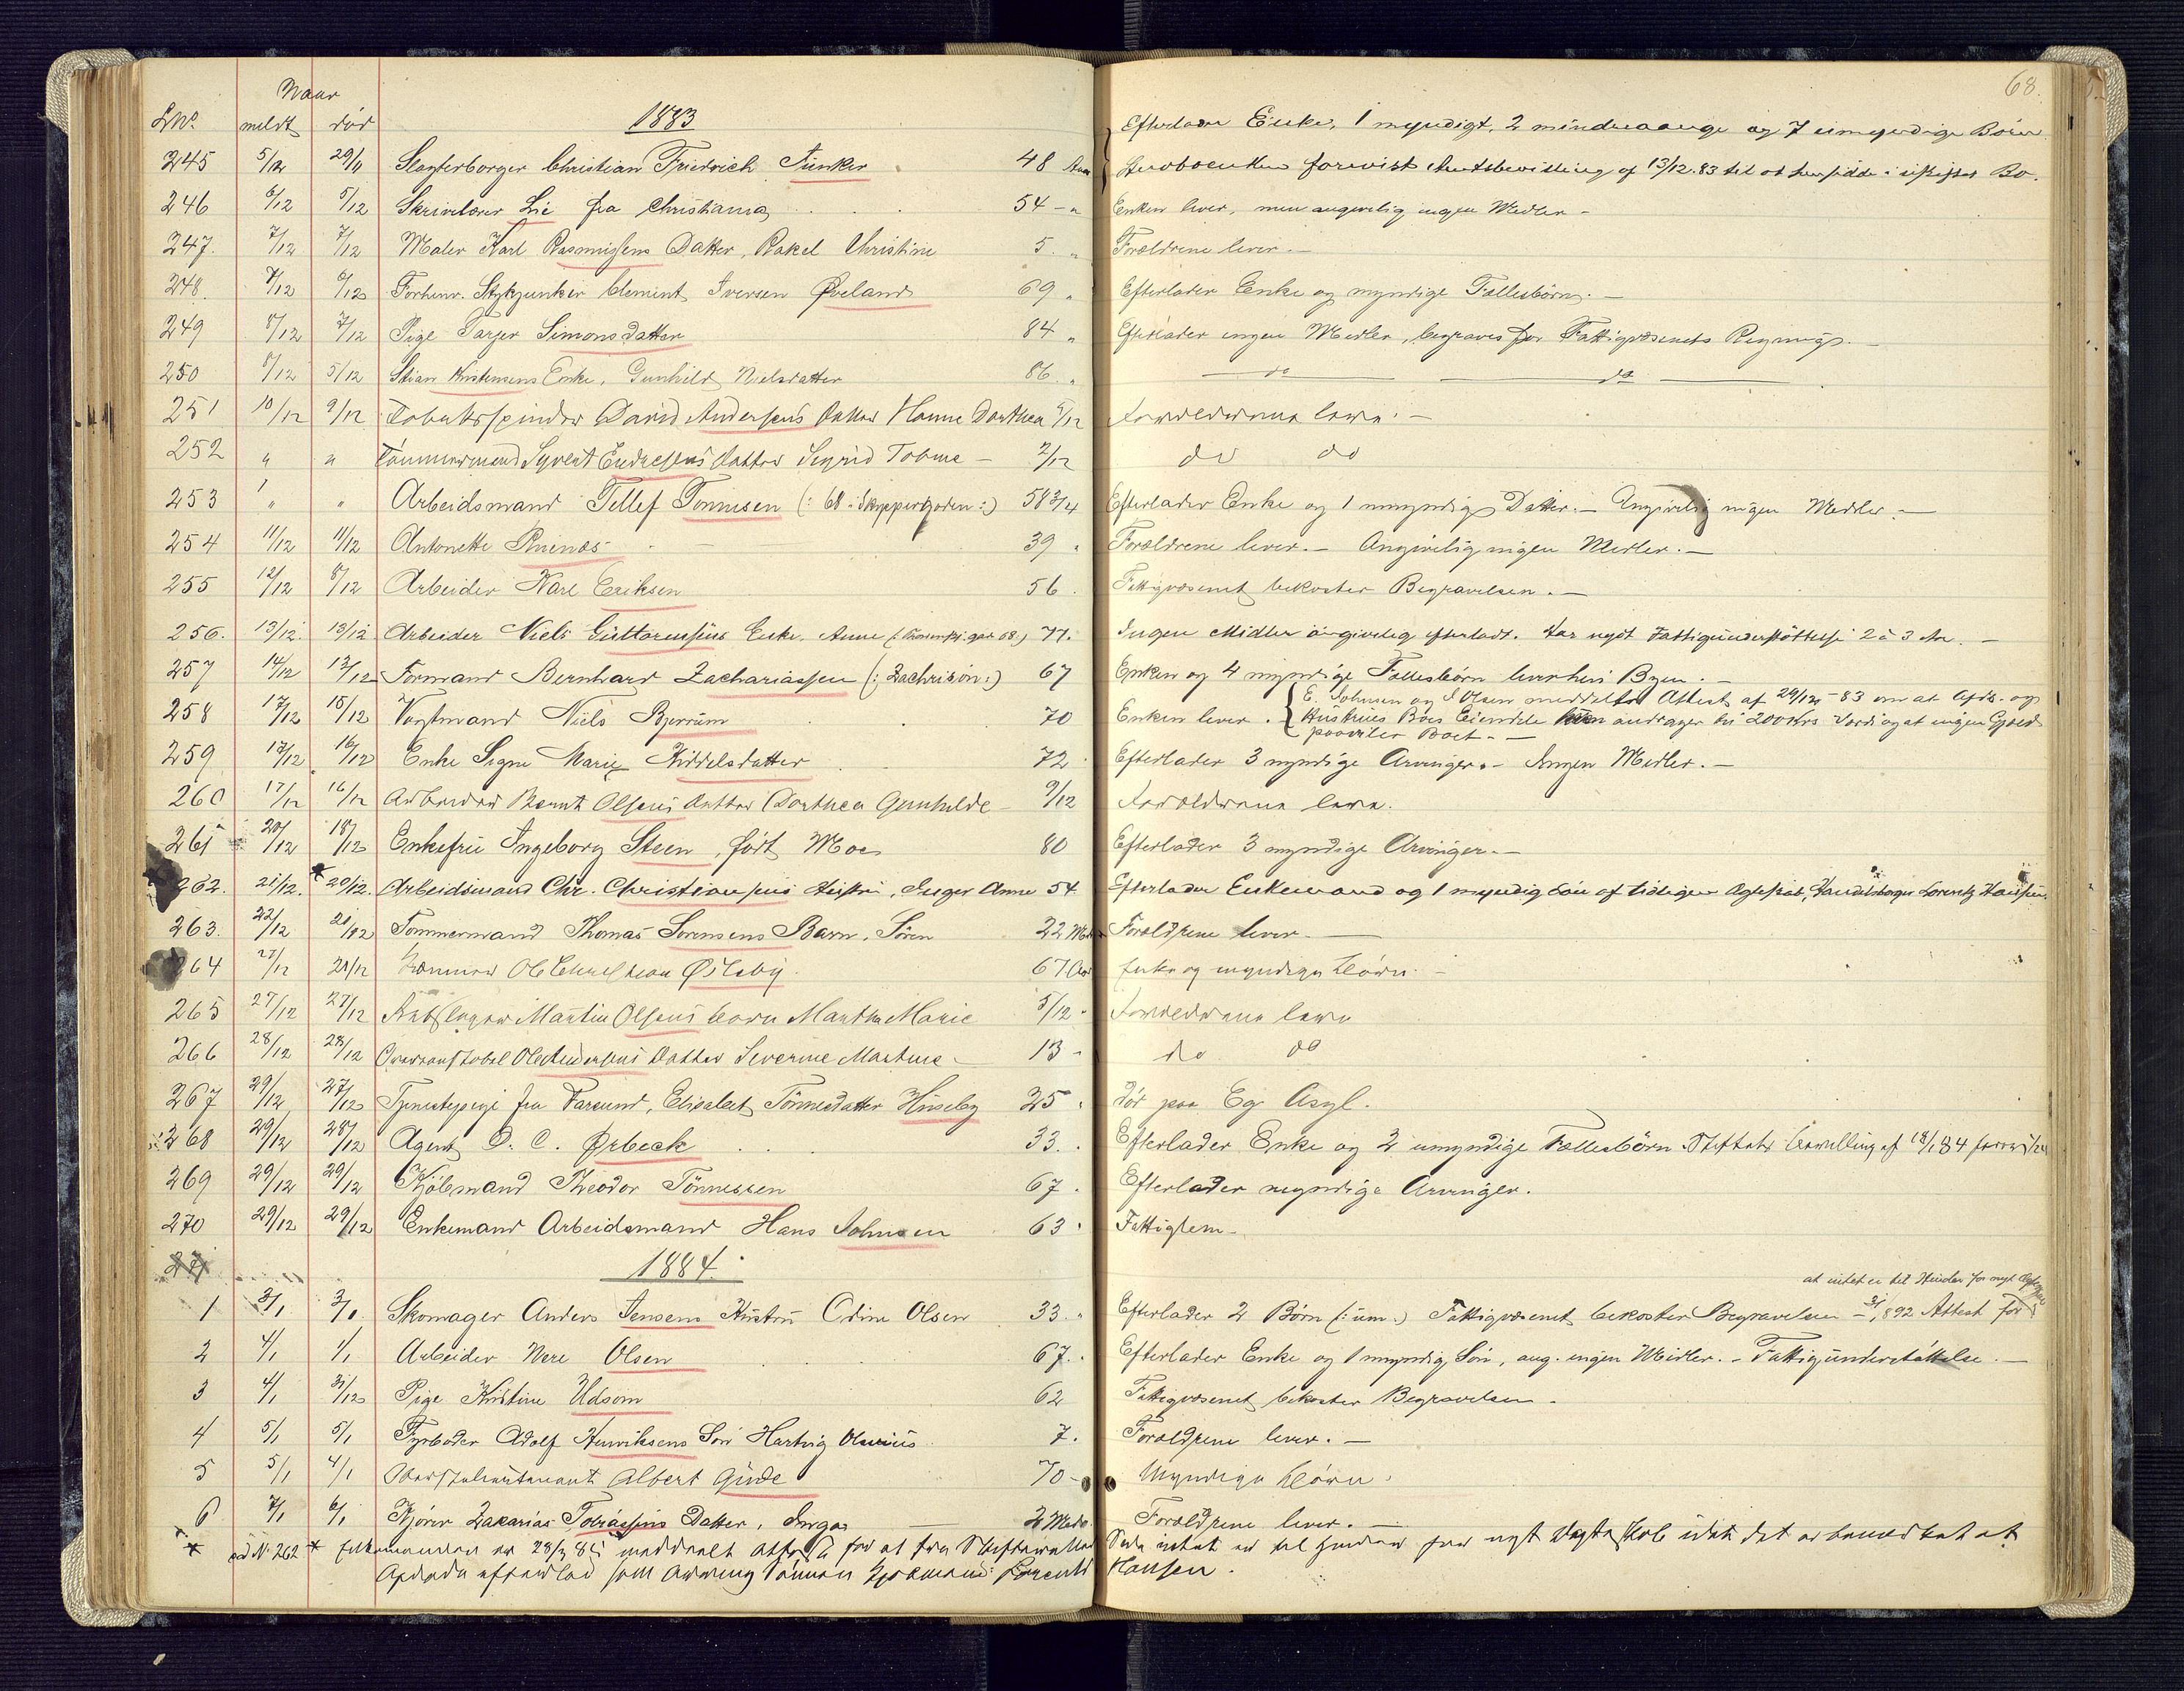 68.
Naar
LNo. meldt død 1883 Efterlader Enke, 1 myndigt, 2 mindreaarige og 7 umyndige Børn
245 5/12 29/11 Slagterborger Christian Friedrich Junker 48 Aar forevist Amtsbevilling af 13/12.83 til at hensidde i uskiftet Bo.
246 6/12 5/12 Skrivelærer Lie fra Christiania 54 - " Enken lever, men angivelig ingen Midler -
247. 7/12 7/12 Maler Karl Rasmussens Datter, Rakel Christine 5. " Forældrene lever. -
248. 7/12 6/12 Forhenv. Stykjunker Clement Iversen Øveland 69 " Efterlader Enke og myndige Fællesbørn. -
249 8/12 7/12 Pige Targer Simonsdatter 84 " Efterlader ingen Midler, begraves for Fattigvæsenets Regning. -
250 8/12 5/12 Stian Kristensens Enke, Gunhild Nielsdatter 86. " do do
251 10/12 9/12 Tobaksspinder David Andersens Datter Hanne Dorthea 5/12 Forældrene leve. -
252 " " Tømmermand Syvert Endresens Datter Sigrid Tobine - 2/12 do do
253 " " Arbeidsmand Tellef Tønnesen (: 68 - Skippergaden :) 58 3/4 Efterlader Enke og 1 umyndig Datter. - Angivelig ingen Midler. -
254 11/12 11/12 Antonette Ruenæs 39 " Forældrene lever. - Angivelig ingen Midler. -
255 12/12 8/12 Arbeider Karl Eriksen 56. Fattigvæsenet bekoster Begravelsen. -
256. 13/12. 13/12 Arbeider Niels Guttormsens Enke, Anne 77. Ingen Midler angivelig efterladt. Har nydt Fattigunderstøttelse 2 à 3 Aar. -
257 14/12 13/12 Formand Bernhard Zachariassen (: Zachrison :) 67 Enken og 4 myndige Fællesbørn lever her i Byen. -
258 17/12 15/12 Vagtmand Niels Bjerrum 70 Enken lever. { E. Johnsen og J Olsen meddelte Attest af 29/12 - 83 om at Afdr. og
Hustrues Boes Eiendele andrager til 200 Krs Værdi og at ingen Gjæld
paahviler Boet. -
259 17/12 16/12 Enke Signe Marie Kiddelsdatter 72 " Efterlader 3 myndige Arvinger. - Ingen Midler. -
260 17/12 16/12 Arbeider Bernt Olsens Datter Dorthea Gunhilde - 9/12 Forældrene leve.
261 20/12 18/12 Enkefru Ingeborg Steen, født Moe 80 Efterlader 3 myndige Arvinger. -
262. 21/12. * 20/12. Arbeidsmand Chr. Christiansens Hustru, Inger Anne 54. Efterlader Enkemand og 1 myndig Søn af tidligere Ægteskab, Handelsborger Lorentz Hansen.
263. 22/12 21/12 Tømmermand Thomas Sørensens Barn, Søren 22 Md. Forældrene lever. -
264 27/12 21/12 Ole Øileby. 67 Aar Enke og myndige Børn. -
265 27/12 27/12 Rebslager Martin Olsens Barn Martha Marie 5/12 " Forældrene leve
266 28/12 28/12 Ole Andersens Datter Severine Martine - 13 - do do
267 29/12 27/12 Tjenestepige fra Farsund, Elisabet Tønnesdatter Huseby 25 " Død paa Eg Asyl.
268 29/12 28/12 Agent D. C. Ørbeck 33. " Efterlader Enke og 2 umyndige Fællesbørn. Skiftets Bevilling af 18/1 84 forevist
269 29/12 29/12 Kjølemand Theodor Tønnessen 67 " Efterlader myndige Arvinger.
270 29/12 29/12 Enkemand Arbeidsmand Hans Johnsen 63 " Fattiglem -
271 1884.
at intet er til Hinder for nyt Ægteskab
1 3/1 3/1 Skomager Anders Jensens Hustru Odine Olsen 33. " Efterlader 2 Børn (: um :) Fattigvæsenet bekoster Begravelsen - 1892 Attest for
2 4/1 1/1 Arbeider Nere Olsen 67. " Efterlader Enke og 1 myndig Søn, ang. ingen Midler. - Fattigunderstøttelse. -
3 4/1 31/12 Pige Kristine Udsom 62 Fattigvæsenet bekoster Begravelsen -
4 5/1 5/1 Fyrbøder Adolf Henriksens Søn Hartvig Olenius 7. Forældrene lever. -
5 5/1 4/1 Oberstløitenant Albert Gude 70 - Myndige Børn.
6 7/1 6/1 Kjører Zakarias Tobiassens Datter, Inga 2 Mdr. Forældrene lever. -
* ad N. 262 * Enkemanden er 28/3 85 meddeelt Attest for at fra Skifterettens Side intet er til Hinder for nyt Ægteskab idet det er bemærket at
Afdøde efterlod som Arving Sønnen Lorents Hansen.